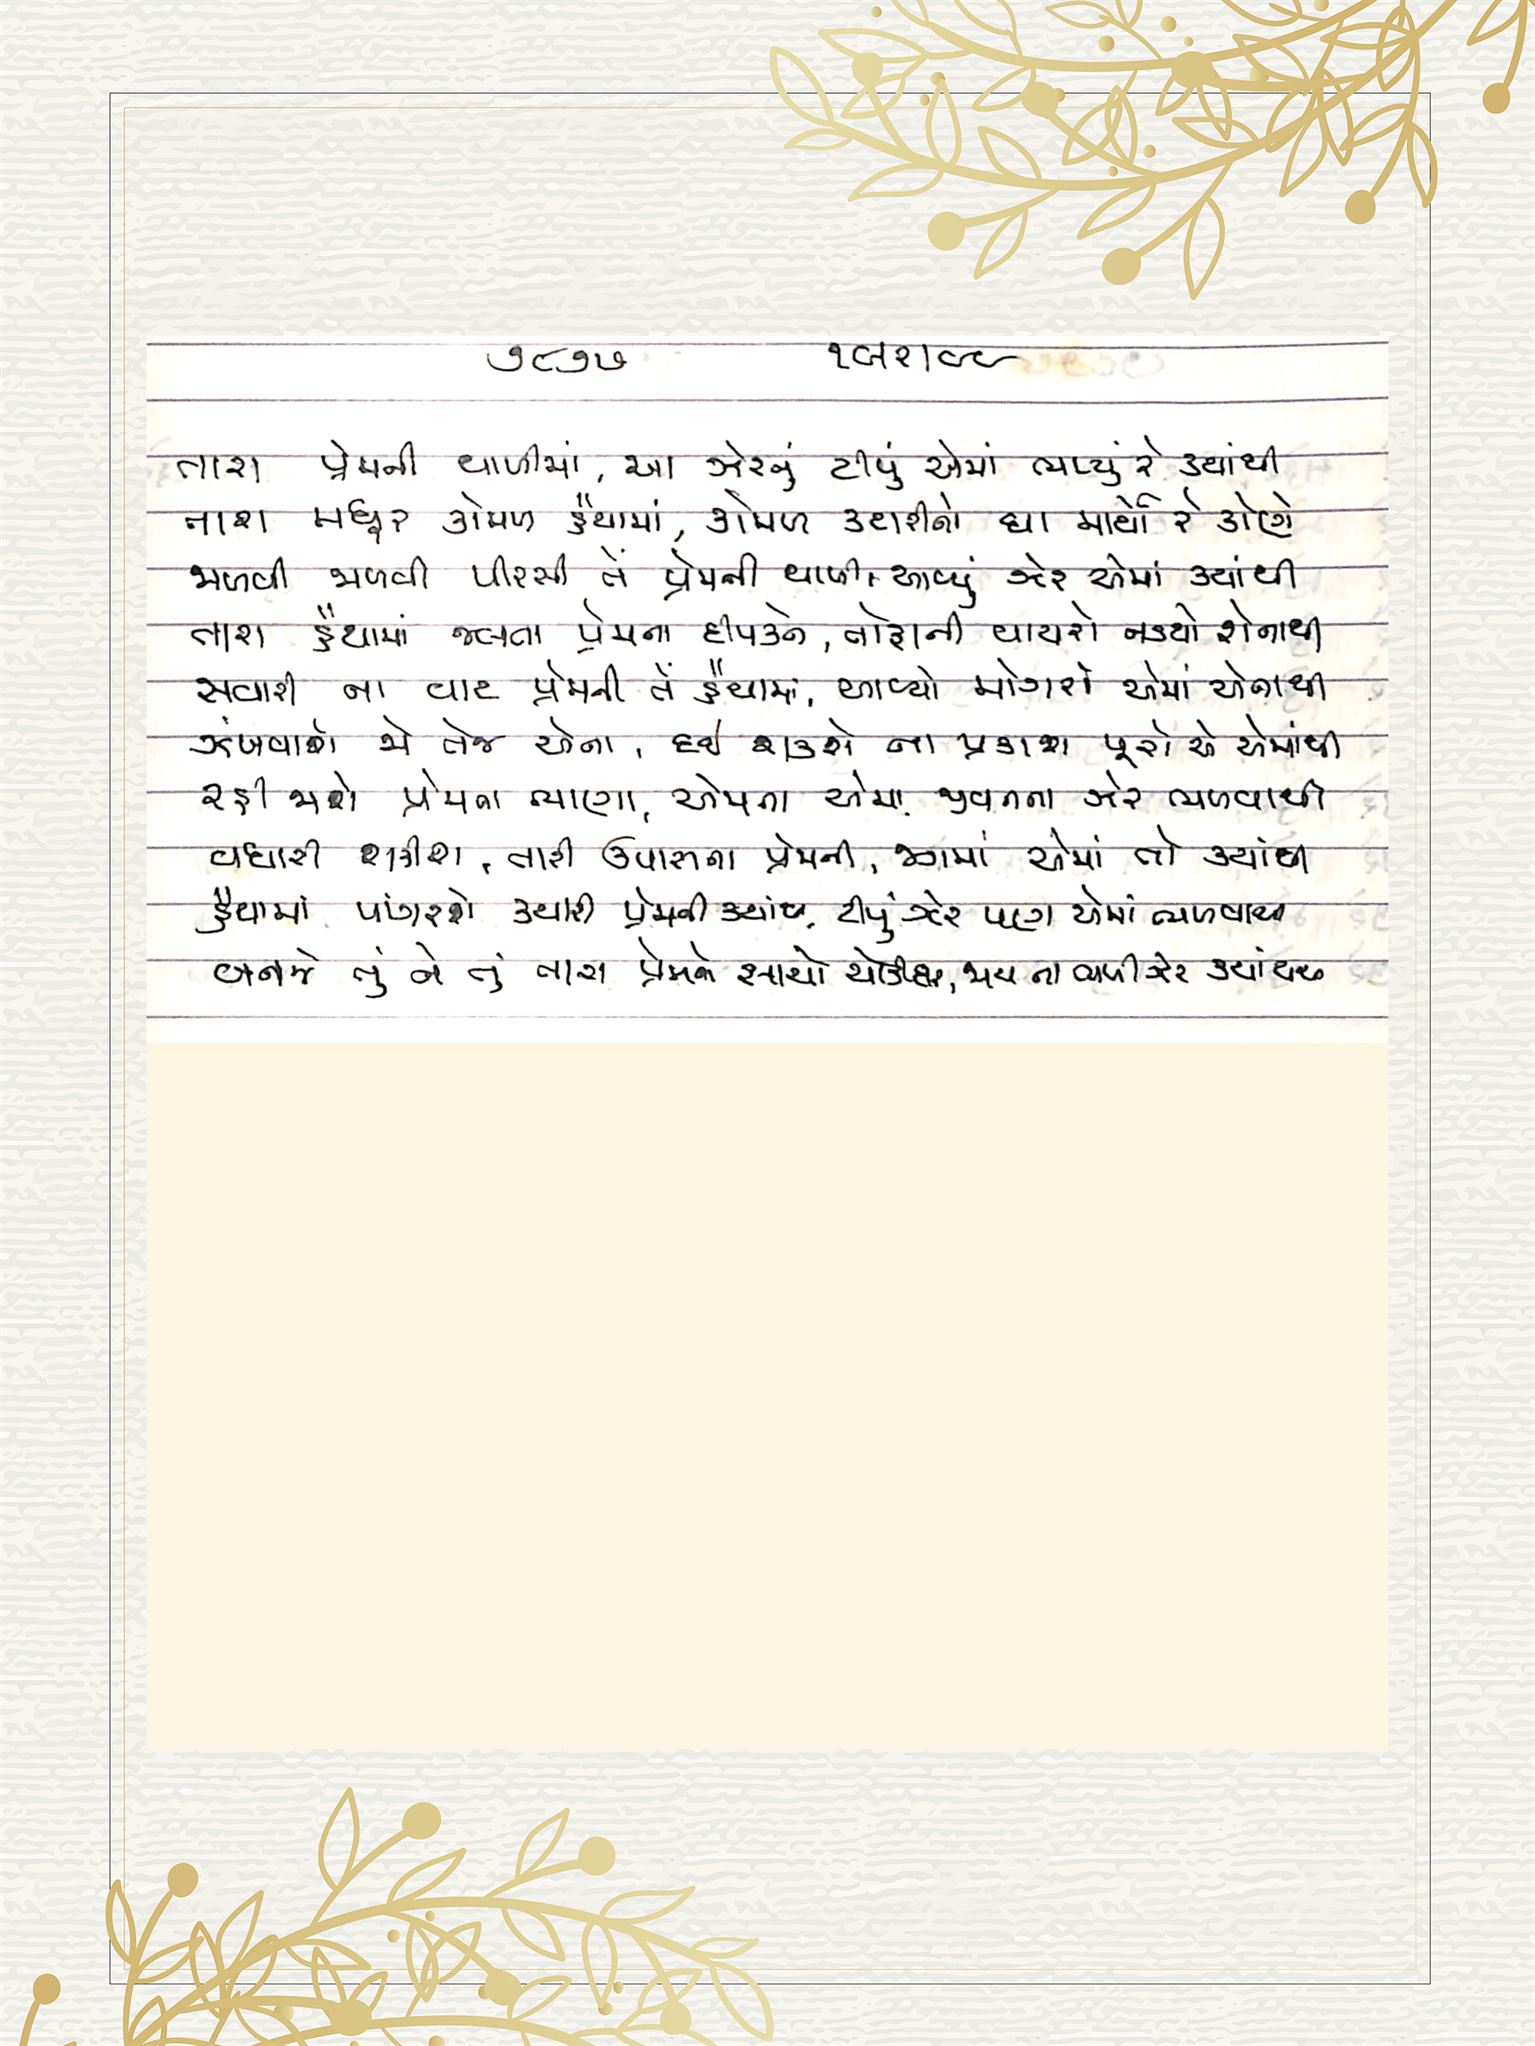 ૭૮૭૫
તારા પ્રેમની થાળીમાં, આ ઝેરનું ટીપું એમાં ભળ્યું રે ક્યાંથી
તારા મધુર કોમળ હૈયામાં, કોમળ કટારીનો ઘા માર્યો રે કોણે
ભળવી ભળવી પીરસી તેં પ્રેમની થાળી, આવ્યું ઝેર એમાં ક્યાંથી
તારા હૈયામાં જલતા પ્રેમના દીપકને, તોફાની વાયરો નડયો શેનાથી
સવારી ના વાટ પ્રેમની તેં હૈયામાં, આવ્યો મોગરો એમાં એનાથી
ઝંખવાશે જો તેજ એના, દઈ શકશે ના પ્રકાશ પૂરો એ એમાંથી
રહી જાશે પ્રેમના ભાણા, એમના એમાં જીવનના ઝેર ભળવાથી
વધારી શકીશ, તારી ઉપાસના પ્રેમની, જગમાં એમાં તો ક્યાંથી
હૈયામાં પાંગરશે ક્યારી પ્રેમની ક્યાંથી, ટીપું ઝેર પણ એમાં ભળવાથી
બનજે તું ને તું તારા પ્રેમનો સાચો ચોકીદાર, જાય ના ભળી ઝેર ક્યાંયથી